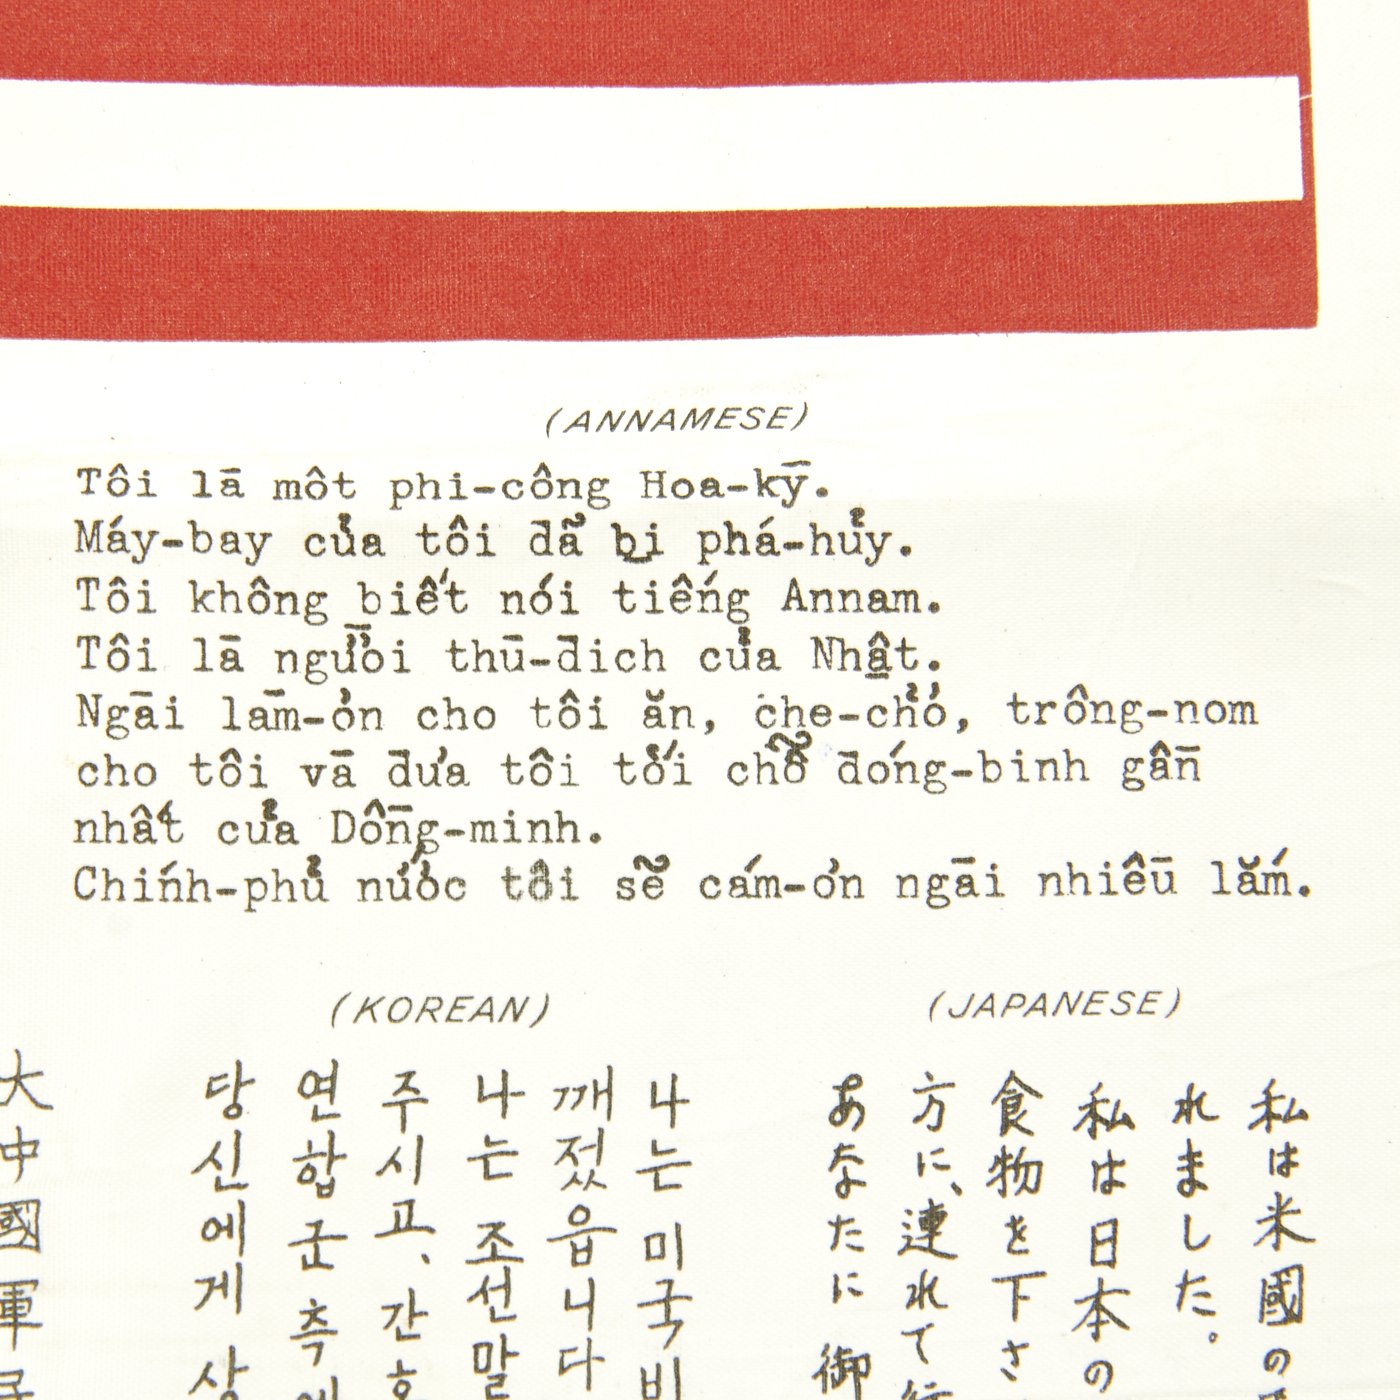 (ANNAMESE)
Tôi lā môt phi-công Hoa-kȳ.
Máy-bay của tôi đẫ bị phá-hủy.
Tôi không biết nói tiếng Annam.
Tôi lā người thū-đich của Nhật.
Ngāi lām-ơn cho tôi ăn, che-chở, trông-nom
cho tôi vā đưa tôi tới chỗ đóng-binh gần
nhất của Dồng-minh.
Chính-phủ nước tôi sẽ cám-ơn ngāi nhiêū lắm.
(KOREAN)
(JAPANESE)
私は米國の
れました。
私は日本の
食物を下さ
方に、連れて
あなたに御
나는 미국 비
깨졌읍니다
나는 조선말
주시고、간호
연합군 측에
당신에게 상
大中國軍